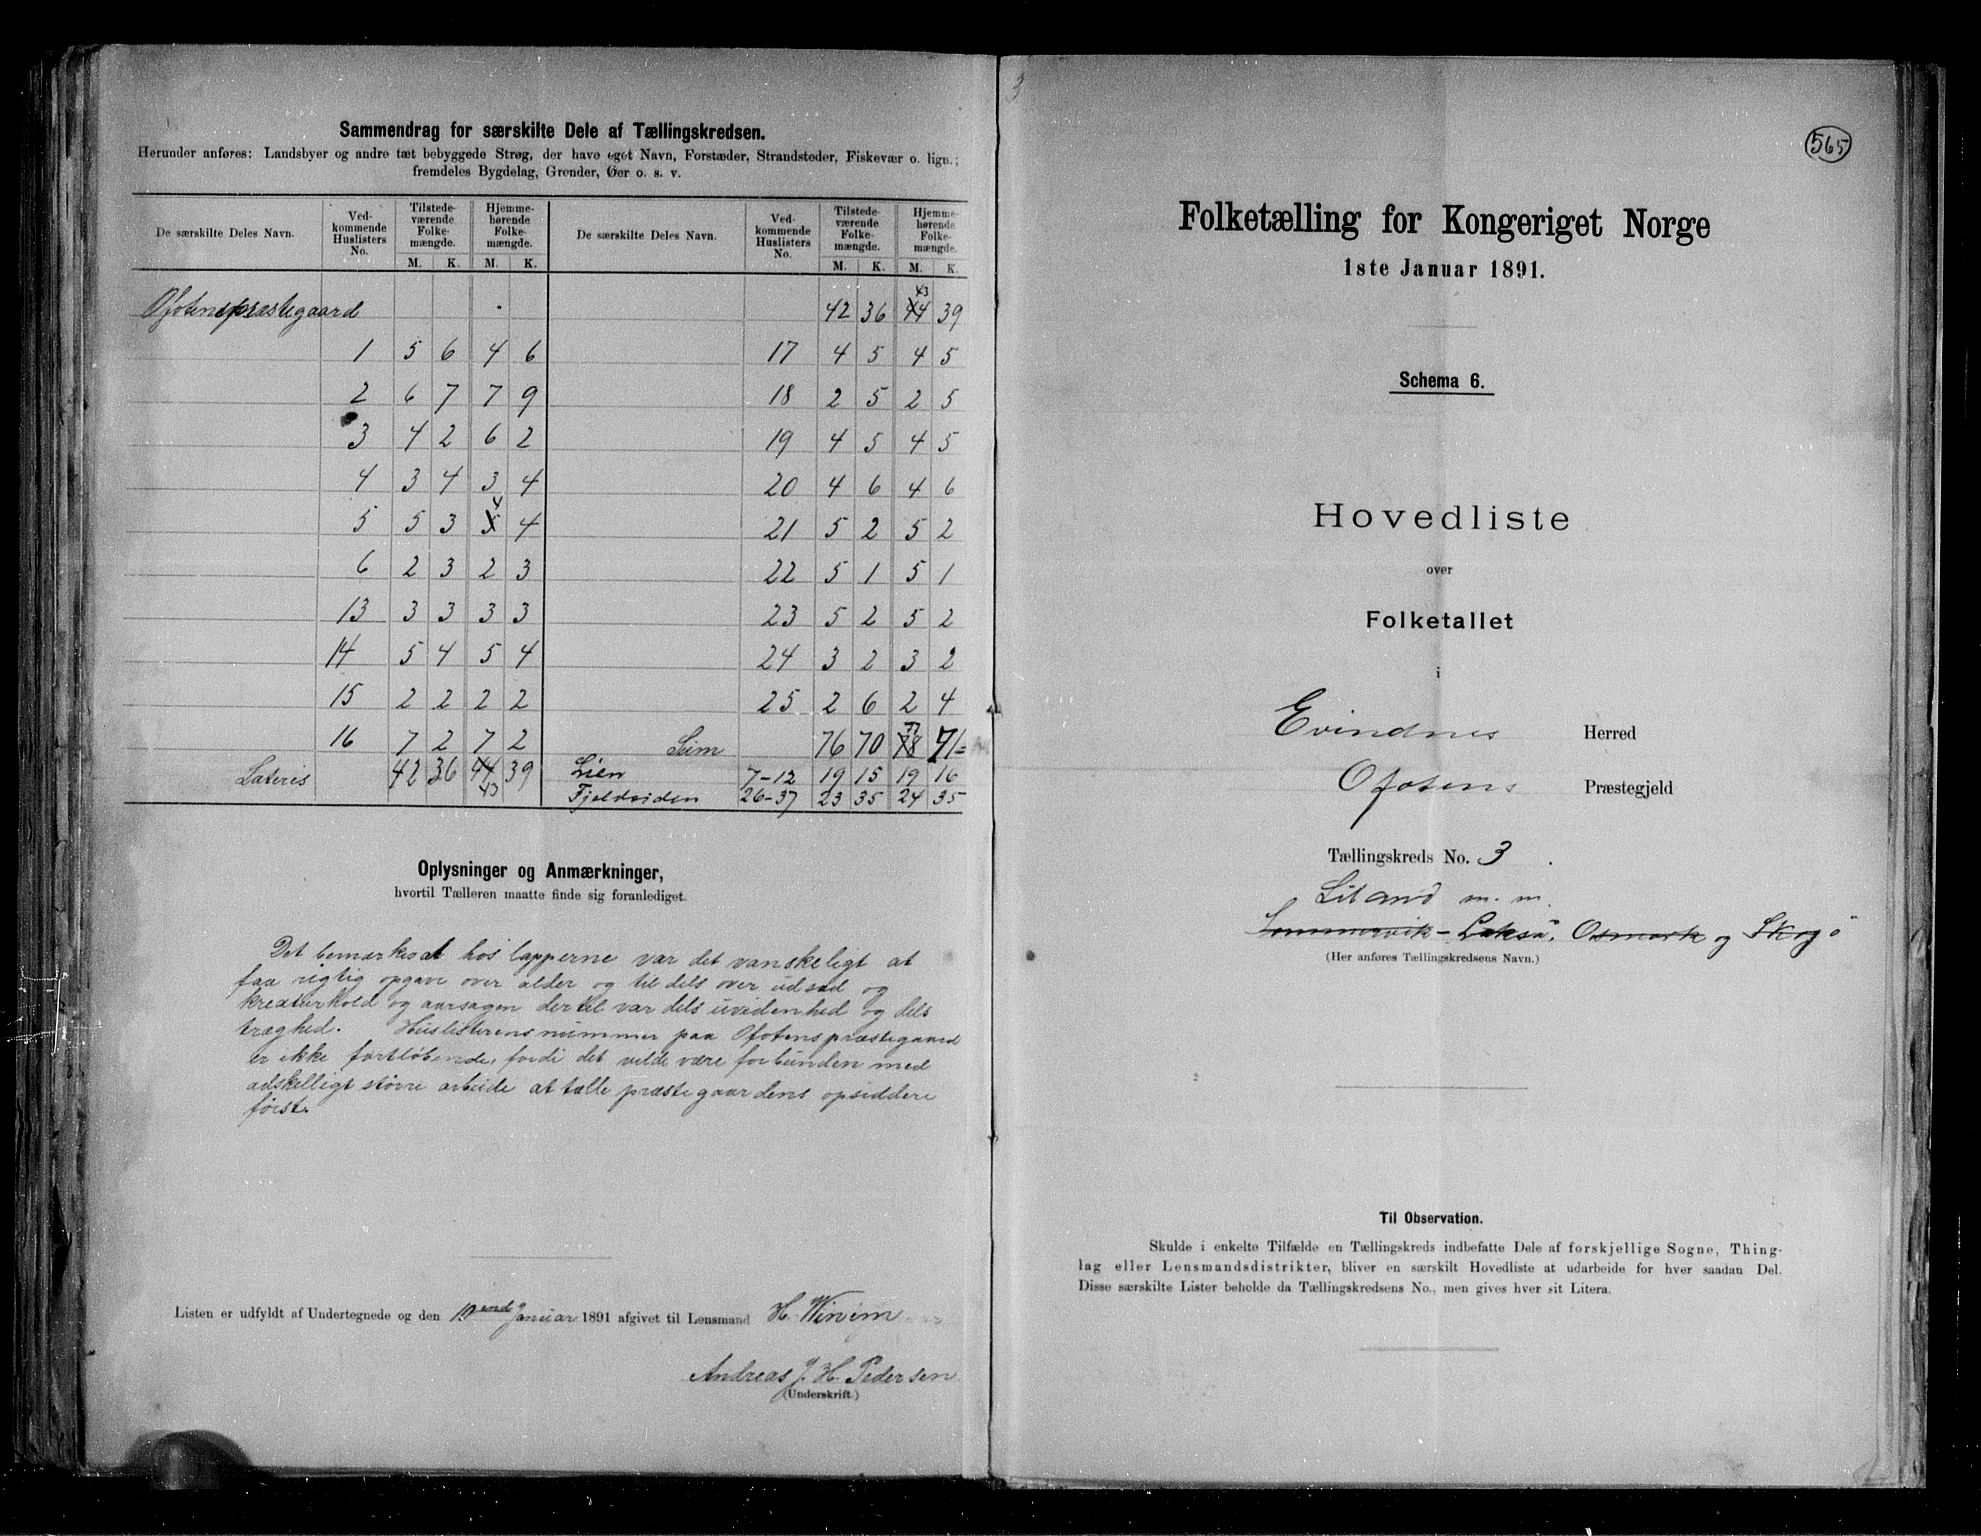 Sammendrag for særskilte Dele af Tællingskredsen.
Herunder anføres: Landsbyer og andre tæt bebyggede Strøg, der have eget Navn, Forstæder, Strandsteder, Fiskevær o. lign.;
fremdeles Bygdelag, Grender, Øer o. s. v.
De særskilte Deles Navn. Vedkommende Huslisters No. Tilstedeværende Folkemængde. Hjemmehørende Folkemængde. De særskilte Deles Navn. Vedkommende Huslisters No. Tilstedeværende Folkemængde. Hjemmehørende Folkemængde.
M. K. M. K. M. K. M. K.
Ofotenspræstegaard 42 36 44 43 39
1 5 6 4 6 17 4 5 4 5
2 6 7 7 9 18 2 5 2 5
3 4 2 6 2 19 4 5 4 5
4 3 4 3 4 20 4 6 4 6
5 5 3 5 4 4 21 5 2 5 2
6 2 3 2 3 22 5 1 5 1
13 3 3 3 3 23 5 2 5 2
14 5 4 5 4 24 3 2 3 2
15 2 2 2 2 25 2 6 2 4
16 7 2 7 2 Sum 76 70 78 77 71=
Lateris 42 36 44 43 39 Lien 7-12 19 15 19 16
Fjeldsiden 26-37 23 35 24 35
Oplysninger og Anmærkninger,
hvortil Tælleren maatte finde sig foranlediget.
Det bemærkes at hos lapperne var det vanskeligt at
faa rigtig opgave over alder og til dels over udsæd og
kreaturhold og aarsagen dertil var dels uvidenhed og dels
træghed. Huslisterens nummer paa Ofotenspræstegaard
er ikke fortløbende, fordi det vilde være forbunden med
adskilligt större arbeide at tælle præstegaardens opsiddere
först.
Listen er udfyldt af Undertegnede og den Januar 1891 afgivet til Lensmand H.
Andreas J. H. Pedersen
(Underskrift.)
3
565
Folketælling for Kongeriget Norge
1ste Januar 1891.
Schema 6.
Hovedliste
over
Folketallet
i
Evindnes Herred
Ofotens Præstegjeld
Tællingskreds No. 3.
Liland m. m.
Sommervik - Lakså, Osmark og Skogö
(Her anføres Tællingskredsens Navn.)
Til Observation.
Skulde i enkelte Tilfælde en Tællingskreds indbefatte Dele af forskjellige Sogne, Thing-
lag eller Lensmandsdistrikter, bliver en særskilt Hovedliste at udarbeide for hver saadan Del.
Disse særskilte Lister beholde da Tællingskredsens No., men gives hver sit Litera.